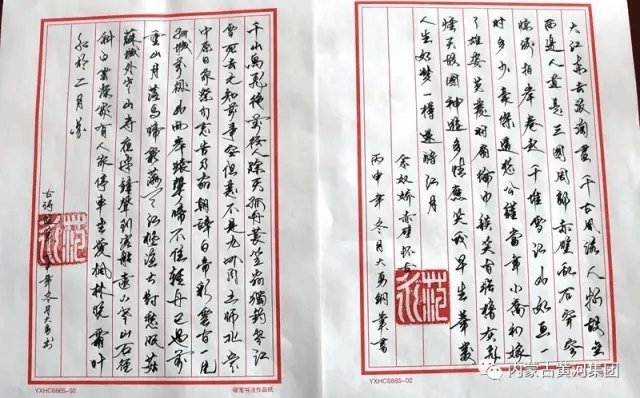 大江东去浪淘尽千古风流人物故垒
西边人道是三国周郎赤壁乱石穿空
惊涛拍岸卷起千堆雪江山如画一
时多少豪杰遥想公瑾当年小乔初嫁
了雄姿英发羽扇纶巾谈笑间樯橹灰飞
烟灭故国神游多情应笑我早生华发
人生如梦一樽还酹江月
念奴娇赤壁怀古
丙申年冬月大勇钢笔书
YXHC6665-02
千山鸟飞绝万径人踪灭孤舟蓑笠翁独钓寒江
雪死去元知万事空但悲不见九州同王师北定
中原日家祭勿忘告乃翁朝辞白帝彩云间千里
江陵一日还两岸猿声啼不住轻舟已过万
重山月落乌啼霜满天江枫渔火对愁眠姑
苏城外寒山寺夜半钟声到客船远上寒山石径
斜白云深处有人家停车坐爱枫林晚霜叶
红于二月花
古诗 年冬月大勇书
YXHC6665-02
硬笔书法作品纸
内蒙古黄河集团